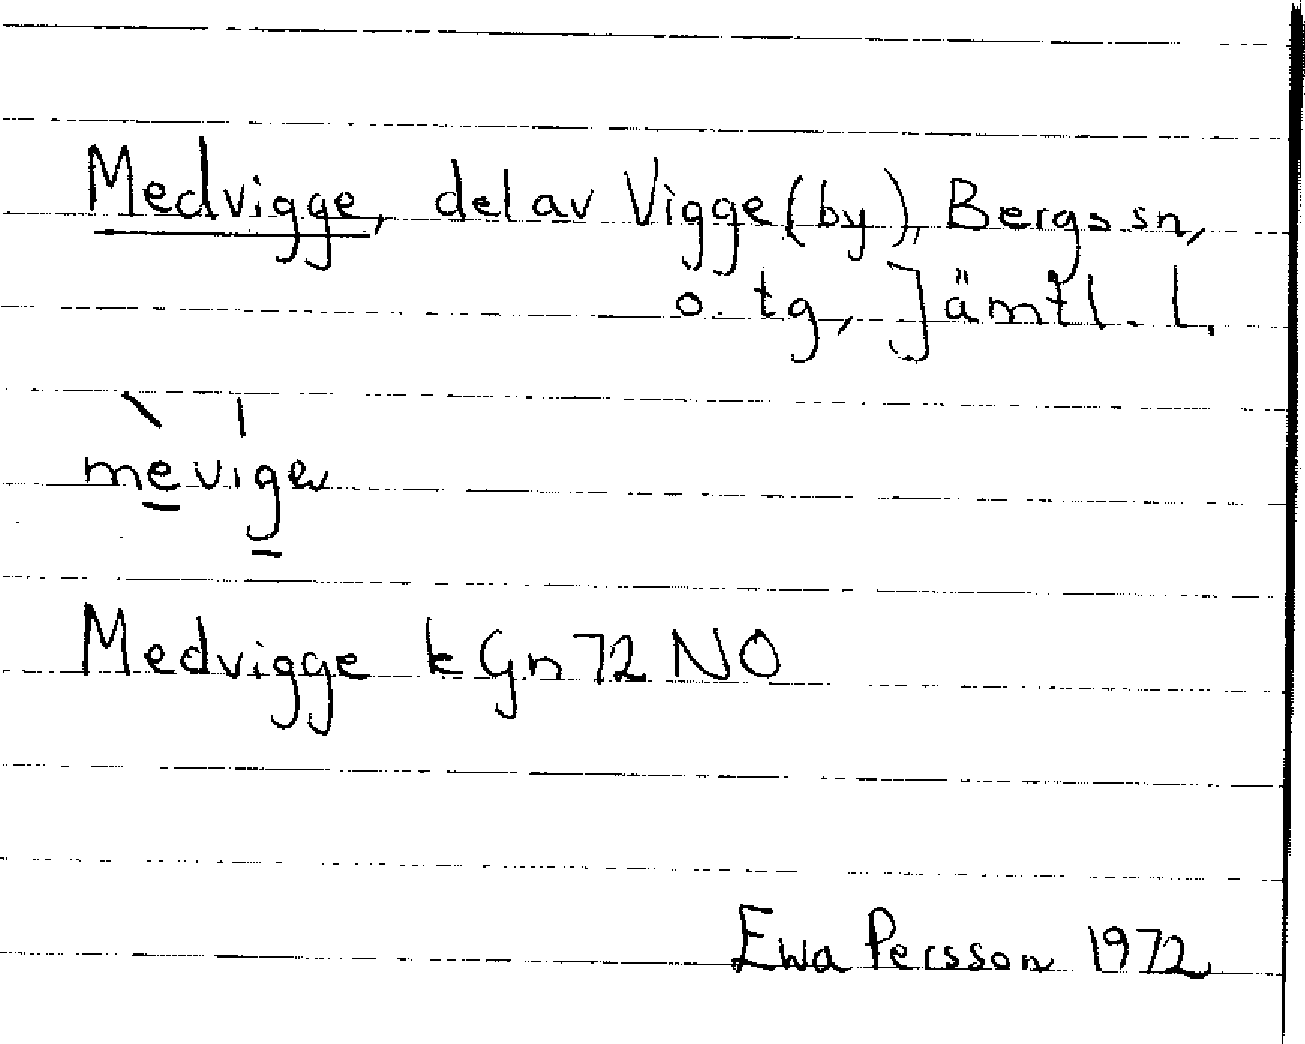 Medvigge, del av Vigge (by), Bergs sn,
o. tg, Jämtl. l.
mèviga
Medvigge k Gn 72 NO
Ewa Persson 1972